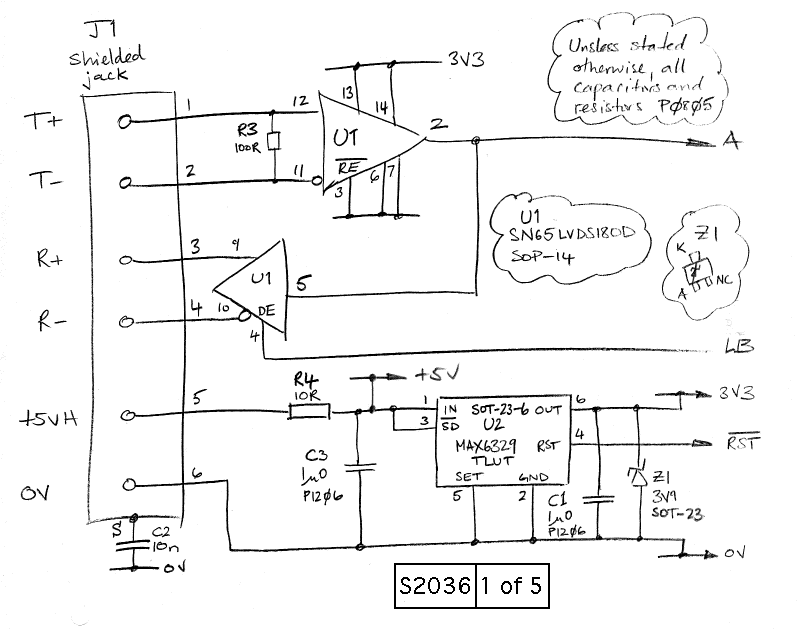 J1
shielded
jack
T+
1
T-
2
R+
3
R-
4
+5VH
5
0V
6
S
C2
10n
0V
R3
100R
12
11
U1
RE
13
14
3V3
3
6
7
2
A
Unsless stated
otherwise, all
capacitors and
resistors P0805
U1
SN65LVDS180D
SOP-14
Z1
K
A
NC
9
10
U1
DE
4
5
LB
R4
10R
+5V
C3
1u0
P1206
1
3
IN
SD
SOT-23-6
OUT
U2
MAX6329
TLUT
RST
SET
GND
5
2
6
4
3V3
RST
C1
1u0
P1206
Z1
3V9
SOT-23
0V
S2036 1 of 5